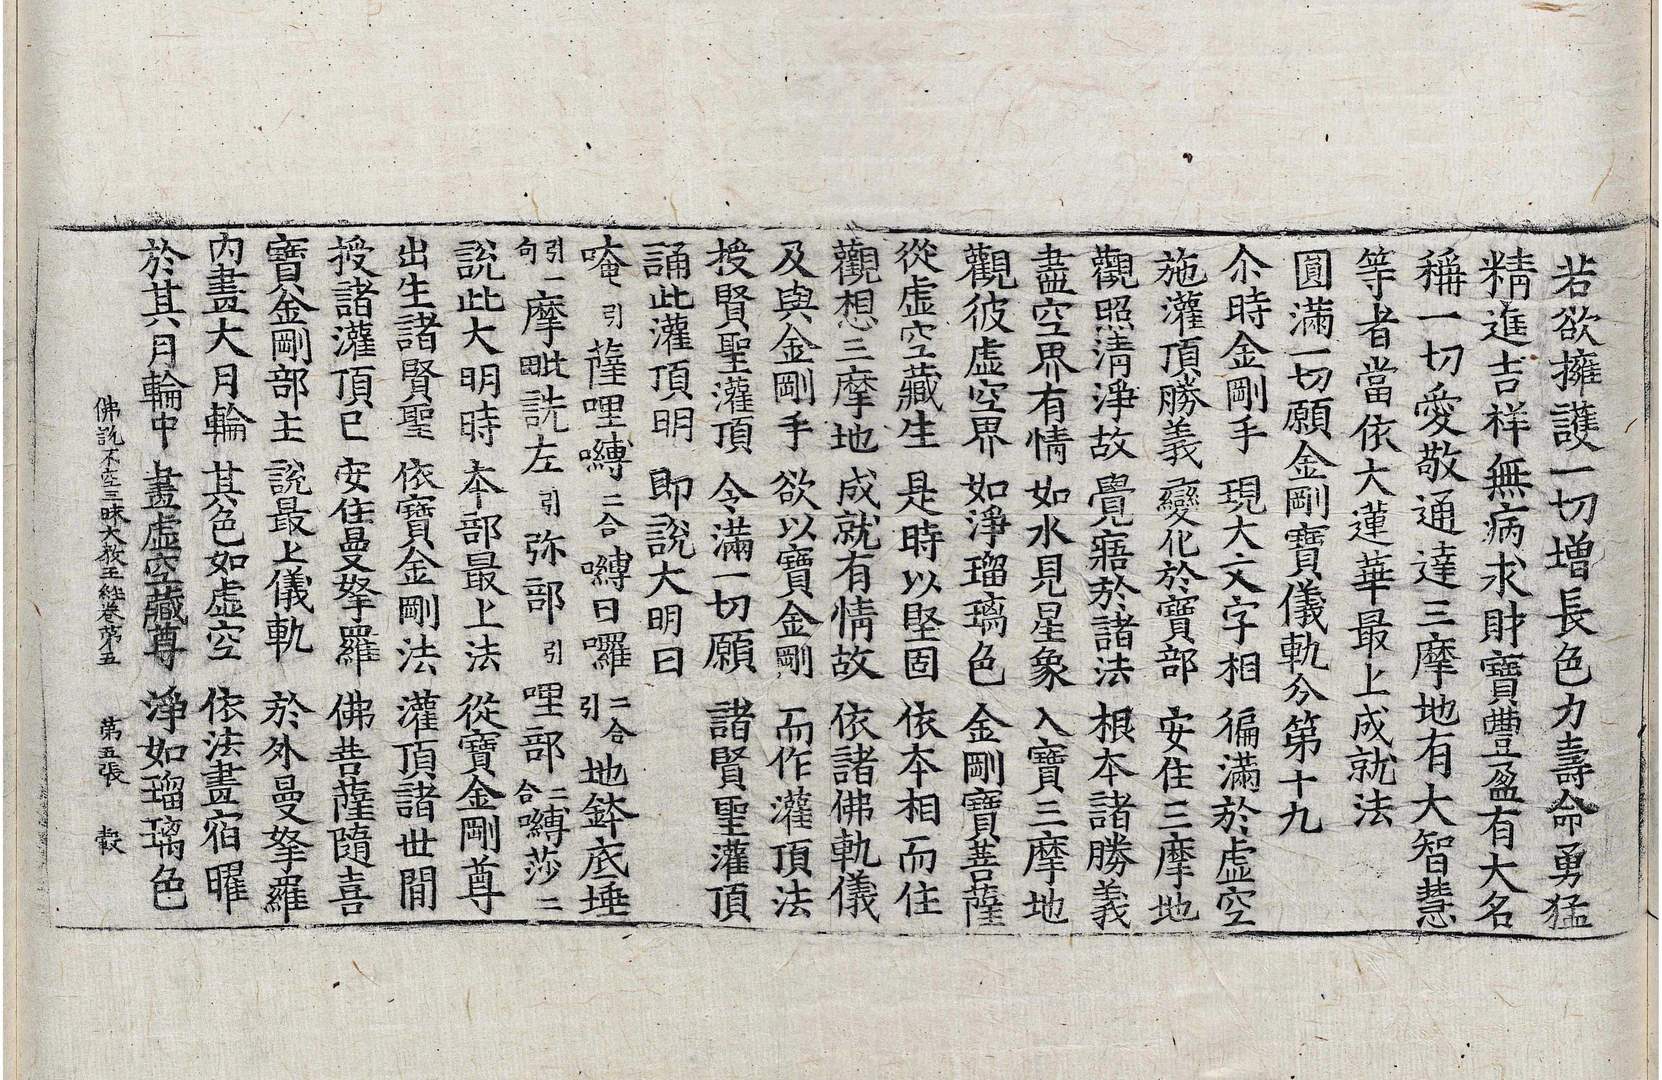 若欲擁護一切增長色力壽命勇猛
精進吉祥無病求財寶豊盈有大名
稱一切愛敬通達三摩地有大智慧
等者當依大蓮華最上成就法
圓滿一切願金剛寶儀軌分第十九
尒時金剛手 現大文字相 徧滿於虛空
施灌頂勝義 變化於寶部 安住三摩地
觀照清淨故 覺寤於諸法 根本諸勝義
盡空界有情 如水見星象 入寶三摩地
觀彼虛空界 如淨瑠璃色 金剛寶菩薩
從虛空藏生 是時以堅固 依本相而住
觀想三摩地 成就有情故 依諸佛軌儀
及與金剛手 欲以寶金剛 而作灌頂法
授賢聖灌頂 令滿一切願 諸賢聖灌頂
誦此灌頂明 即說大明曰
唵引薩哩嚩二合嚩日囉二合引地鉢底埵
引一句摩毗詵左引弥部引哩部嚩二合莎二
說此大明時 本部最上法 從寶金剛尊
出生諸賢聖 依寶金剛法 灌頂諸世間
授諸灌頂已 安住曼拏羅 佛菩薩隨喜
寶金剛部主 說最上儀軌 於外曼拏羅
內畫大月輪 其色如虛空 依法畫宿曜
於其月輪中 畫虛空藏尊 淨如瑠璃色
佛說不空三昧大教王經卷第五 第五張 㝅